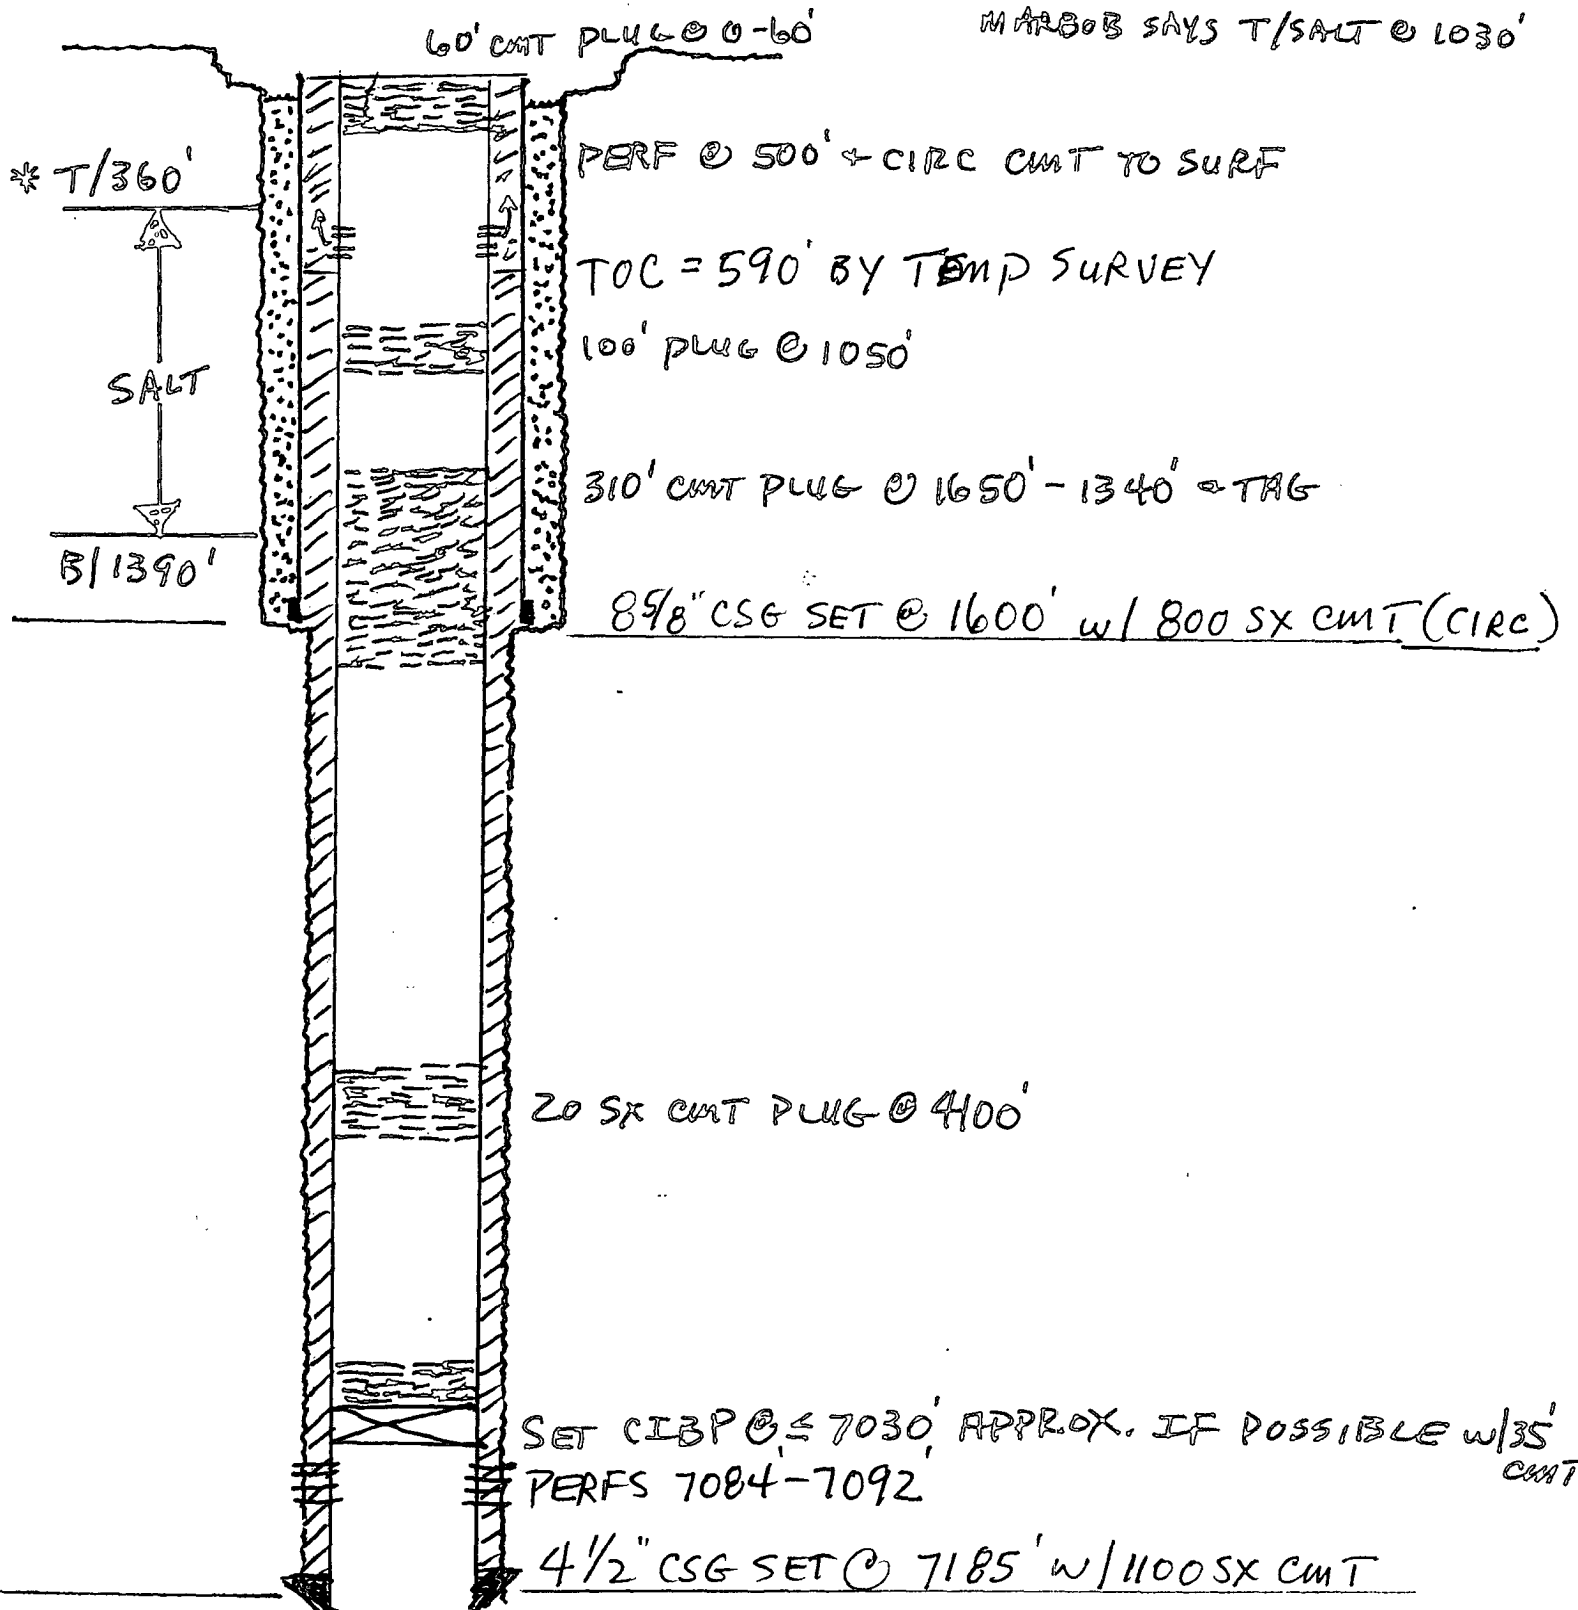 60' CMT PLUG @ 0-60'
MARBOB SAYS T/SALT @ 1030'
PERF @ 500' + CIRC CMT TO SURF
* T/360'
TOC = 590' BY TEMP SURVEY
100' PLUG @ 1050'
SALT
310' CMT PLUG @ 1650' - 1340' - TAG
B/1390'
8 5/8" CSG SET @ 1600' w/ 800 SX CMT (CIRC)
20 SX CMT PLUG @ 4100'
SET CIBP @ ≤ 7030' APPROX. IF POSSIBLE w/35' CMT
PERFS 7084'-7092'
4 1/2" CSG SET @ 7185' w/ 1100 SX CMT